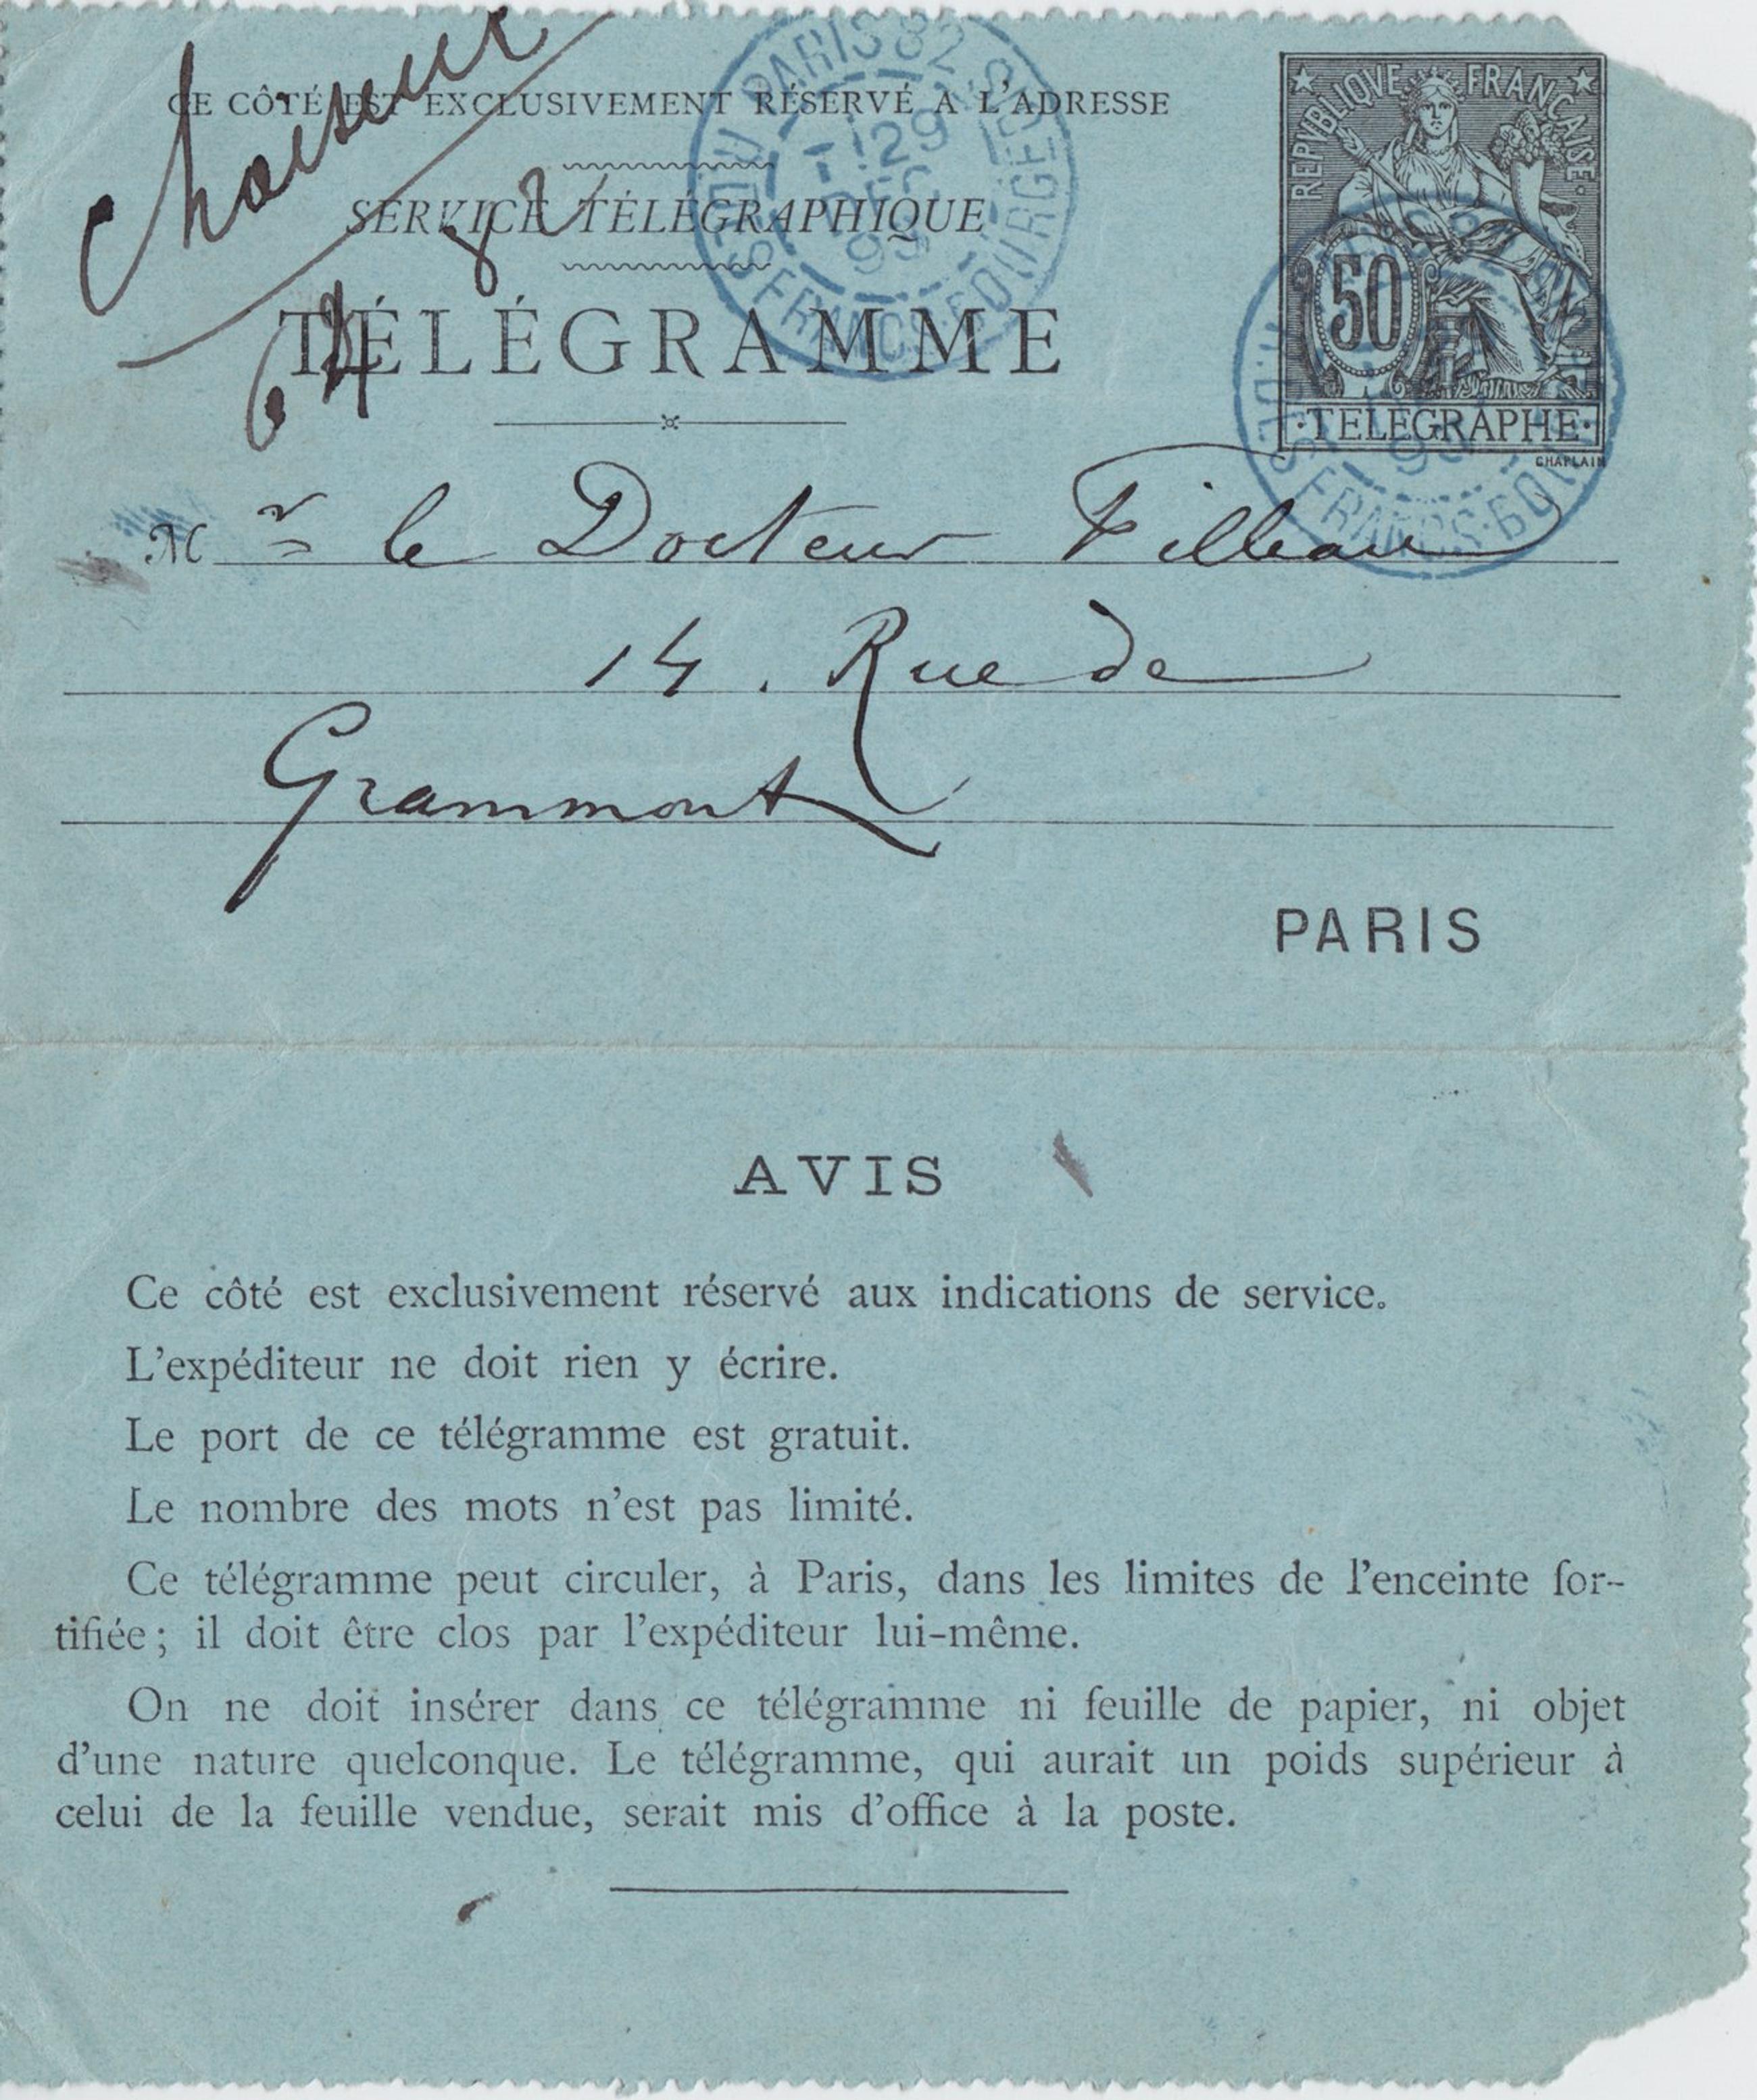 Choiseul
CE CÔTÉ EST EXCLUSIVEMENT RÉSERVÉ A L'ADRESSE
SERVICE TÉLÉGRAPHIQUE
82
TÉLÉGRAMME
PARIS 82
29
DEC
93
FRANCS-BOURGEOIS
REPVBLIQVE FRANÇAISE
50
TELEGRAPHE
CHAPLAIN
Mr le Docteur Filleau
14. Rue de
Grammont
PARIS
AVIS
Ce côté est exclusivement réservé aux indications de service.
L'expéditeur ne doit rien y écrire.
Le port de ce télégramme est gratuit.
Le nombre des mots n'est pas limité.
Ce télégramme peut circuler, à Paris, dans les limites de l'enceinte for-
tifiée; il doit être clos par l'expéditeur lui-même.
On ne doit insérer dans ce télégramme ni feuille de papier, ni objet
d'une nature quelconque. Le télégramme, qui aurait un poids supérieur à
celui de la feuille vendue, serait mis d'office à la poste.